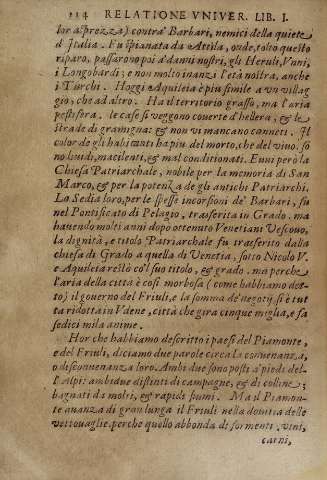 114 RELATIONE VNIVER. LIB. I.
lor asprezza) contra' Barbari, nemici della quiete
d'Italia. Fù spianata da Attila, onde, tolto questo
riparo, passarono poi a' danni nostri, gli Heruli, Vani,
i Longobardi; e non molto inanzi l'età nostra, anche
i Turchi. Hoggi Aquileia è più simile a vn villag
gio; che ad altro. Ha il territorio grasso, ma l'aria
pestifera. le case si veggono couerte d'hellera, & le
strade di gramigna: & non vi mancano canneti. Il
color de gli habitanti ha più del morto, che del viuo. so
no luridi, macilenti, & mal conditionati. Euui però la
Chiesa Patriarchale, nobile per la memoria di San
Marco, & per la potenza de gli antichi Patriarchi.
La Sedia loro, per le spesse incorsioni de' Barbari, fù
nel Pontificato di Pelagio, trasferita in Grado. ma
hauendo molti anni dopo ottenuto Venetiani Vescouo,
la dignità, e titolo Patriarchale fu trasferito dalla
chiesa di Grado a quella di Venetia, sotto Nicolo V.
e Aquileia restò co'l suo titolo, & grado. ma perche
l'aria della città è così morbosa (come habbiamo det-
to) il governo del Friuli, e la somma de' negotij si è tut
ta ridotta in Vdene, città che gira cinque miglia, e fa
sedici mila anime.
Hor che habbiamo descritto i paesi del Piamonte,
e del Friuli, diciamo due parole circa la conuenanza,
o disconuenanza loro. Ambi due sono posti a' piedi del-
l'Alpi: ambidue distinti di campagne, & di colline;
bagnati da molti, & rapidi fiumi. Ma il Piamon-
te auanza di gran lunga il Friuli nella douitia delle
vettouaglie. perche quello abbonda di formenti, vini,
carni,